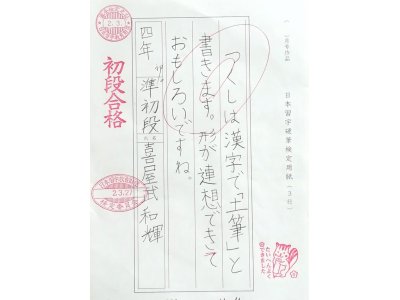 月号作品
日本習字硬筆検定用紙(3行)
つくしは漢字で「土筆」と
書きます。形が連想できて
おもしろいですね。
四年 準初段 喜屋武 和輝
初段合格
2.3.27
たいへんよく
できました